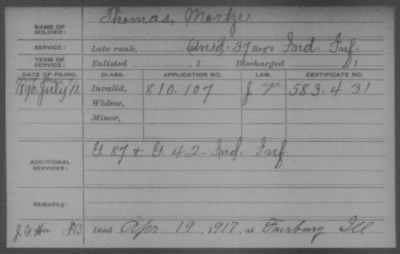 NAME OF SOLDIER: Thomas,
SERVICE: Late rank, Unsd. 37 Reg't Ind Inf.
TERM OF SERVICE: Enlisted , 1 Discharged , 1
DATE OF FILING. CLASS. APPLICATION NO. LAW. CERTIFICATE NO.
1890, July 12 Invalid, 810.107 583.431
Widow,
Minor,
ADDITIONAL SERVICES: G 87 & G. 42 Ind. Inf
REMARKS:
Died Apr 19, 1917, at Fairbury Ill